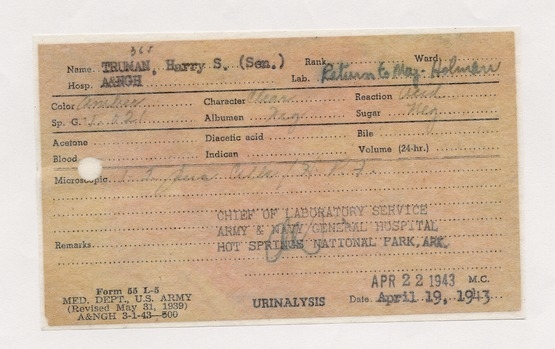 365
Name TRUMAN, Harry S. (Sen.) Rank Ward
Hosp. A&NGH Lab. Return to Maj. Holman
Color Amber Character Clear Reaction Acid
Sp. G. 1.021 Albumen Neg Sugar Neg
Acetone Diacetic acid Bile
Blood Indican Volume (24-hr.)
Microscopic
CHIEF OF LABORATORY SERVICE
ARMY & NAVY GENERAL HOSPITAL
Remarks HOT SPRINGS NATIONAL PARK, ARK.
APR 22 1943 M.C.
Form 55 L-5
MED. DEPT., U.S. ARMY
(Revised May 31, 1939)
A&NGH 3-1-43—500
URINALYSIS Date April 19, 1943